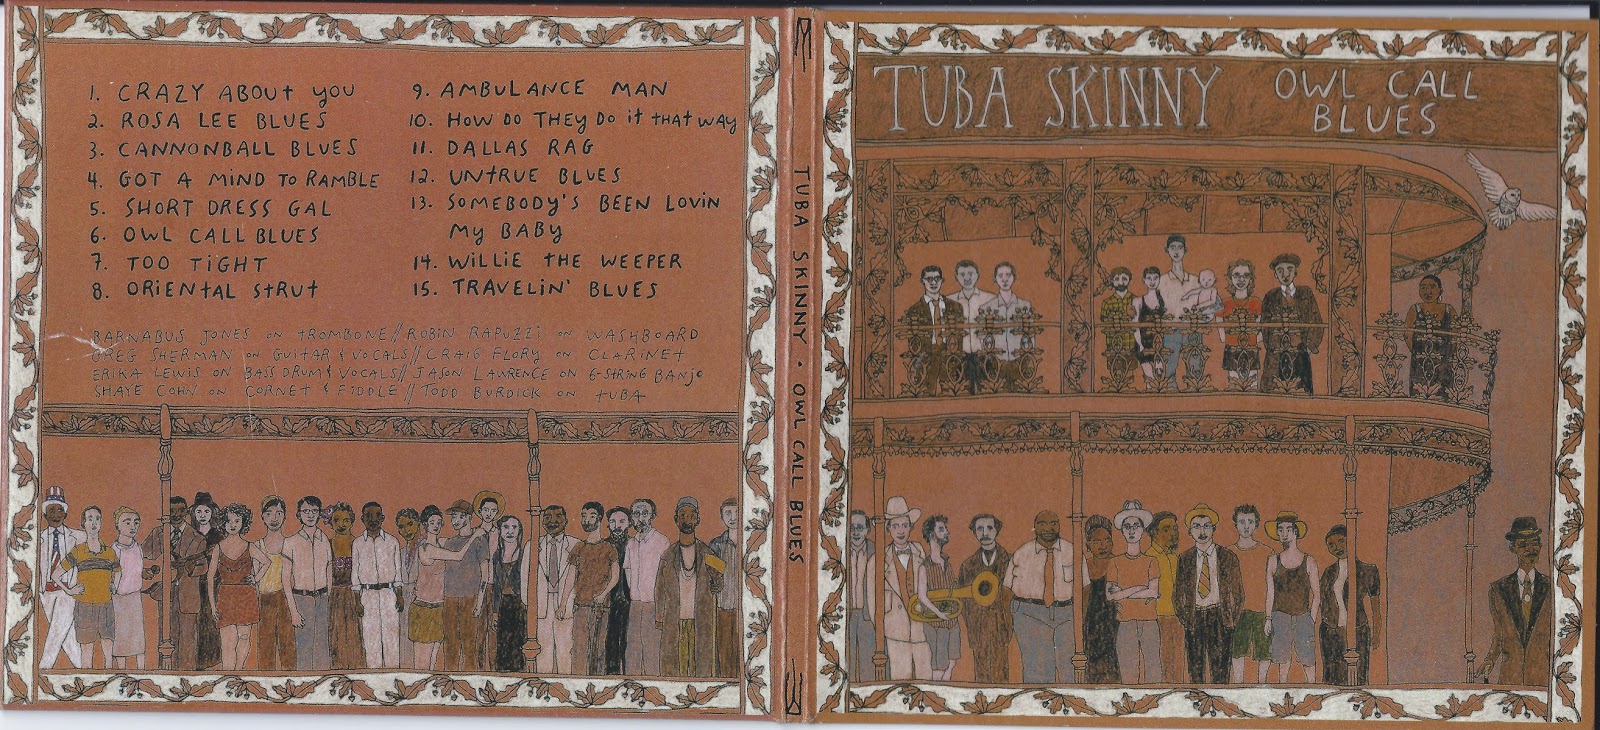 1. CRAZY ABOUT YOU
2. ROSA LEE BLUES
3. CANNONBALL BLUES
4. GOT A MIND TO RAMBLE
5. SHORT DRESS GAL
6. OWL CALL BLUES
7. TOO TIGHT
8. ORIENTAL STRUT
9. AMBULANCE MAN
10. HOW DO THEY DO IT THAT WAY
11. DALLAS RAG
12. UNTRUE BLUES
13. SOMEBODY'S BEEN LOVIN
MY BABY
14. WILLIE THE WEEPER
15. TRAVELIN' BLUES
BARNABUS JONES ON TROMBONE//ROBIN RAPUZZI ON WASHBOARD
GREG SHERMAN ON GUITAR & VOCALS//CRAIG FLORY ON CLARINET
ERIKA LEWIS ON BASS DRUM & VOCALS//JASON LAWRENCE ON 6-STRING BANJO
SHAYE COHN ON CORNET & FIDDLE//TODD BURDICK ON TUBA
TUBA SKINNY • OWL CALL BLUES
TUBA SKINNY
OWL CALL
BLUES